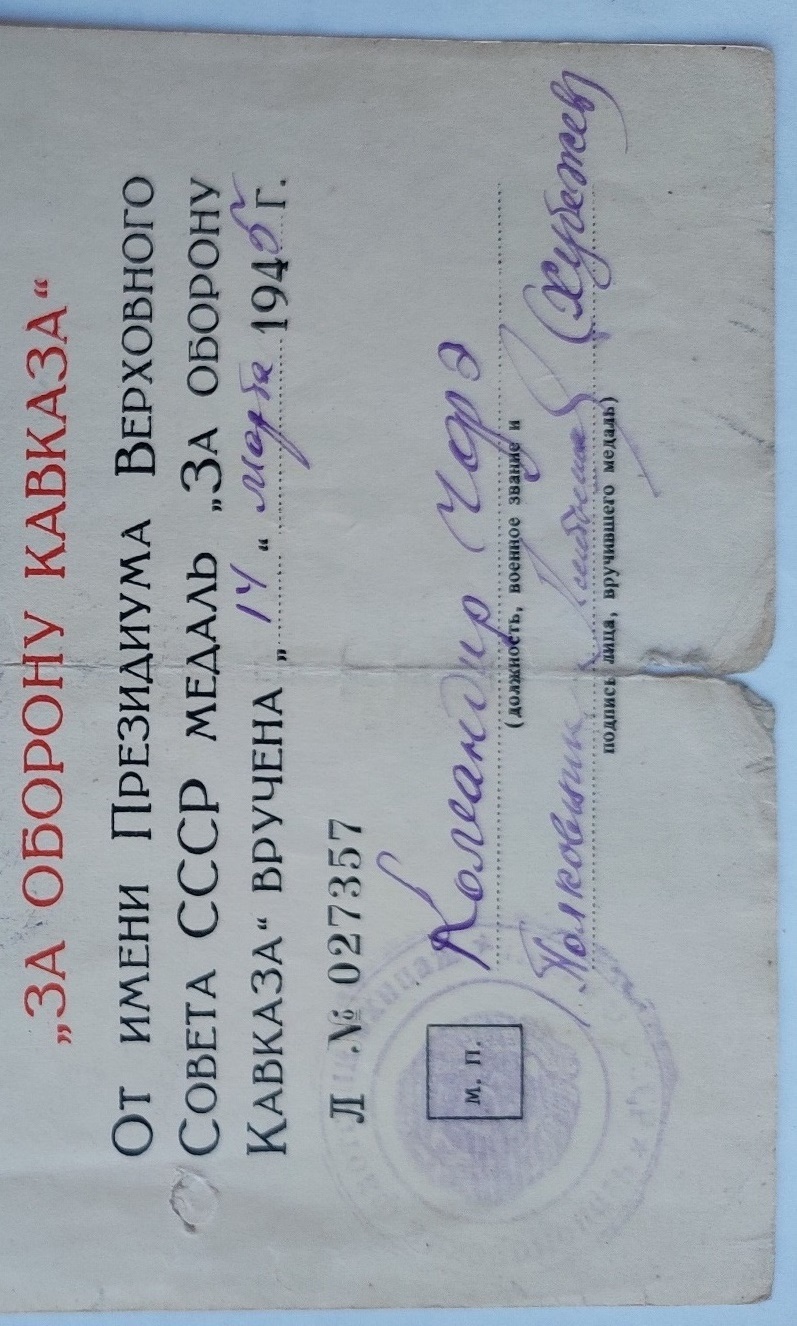 „ЗА ОБОРОНУ КАВКАЗА“
От имени Президиума Верховного
Совета СССР медаль „За оборону
Кавказа“ вручена „14“ марта 1945 г.
Л № 027357
Командир
(должность, военное звание и
Полковник
подпись лица, вручившего медаль)
м. п.